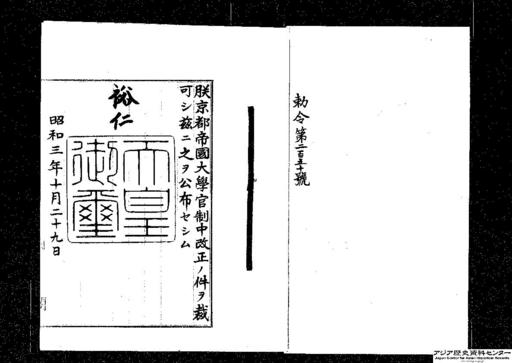 勅令第二百五十號
朕京都帝國大學官制中改正ノ件ヲ裁
可シ茲ニ之ヲ公布セシム
裕仁
天皇
御璽
昭和三年十月二十九日
アジア歴史資料センター
Japan Center for Asian Historical Records